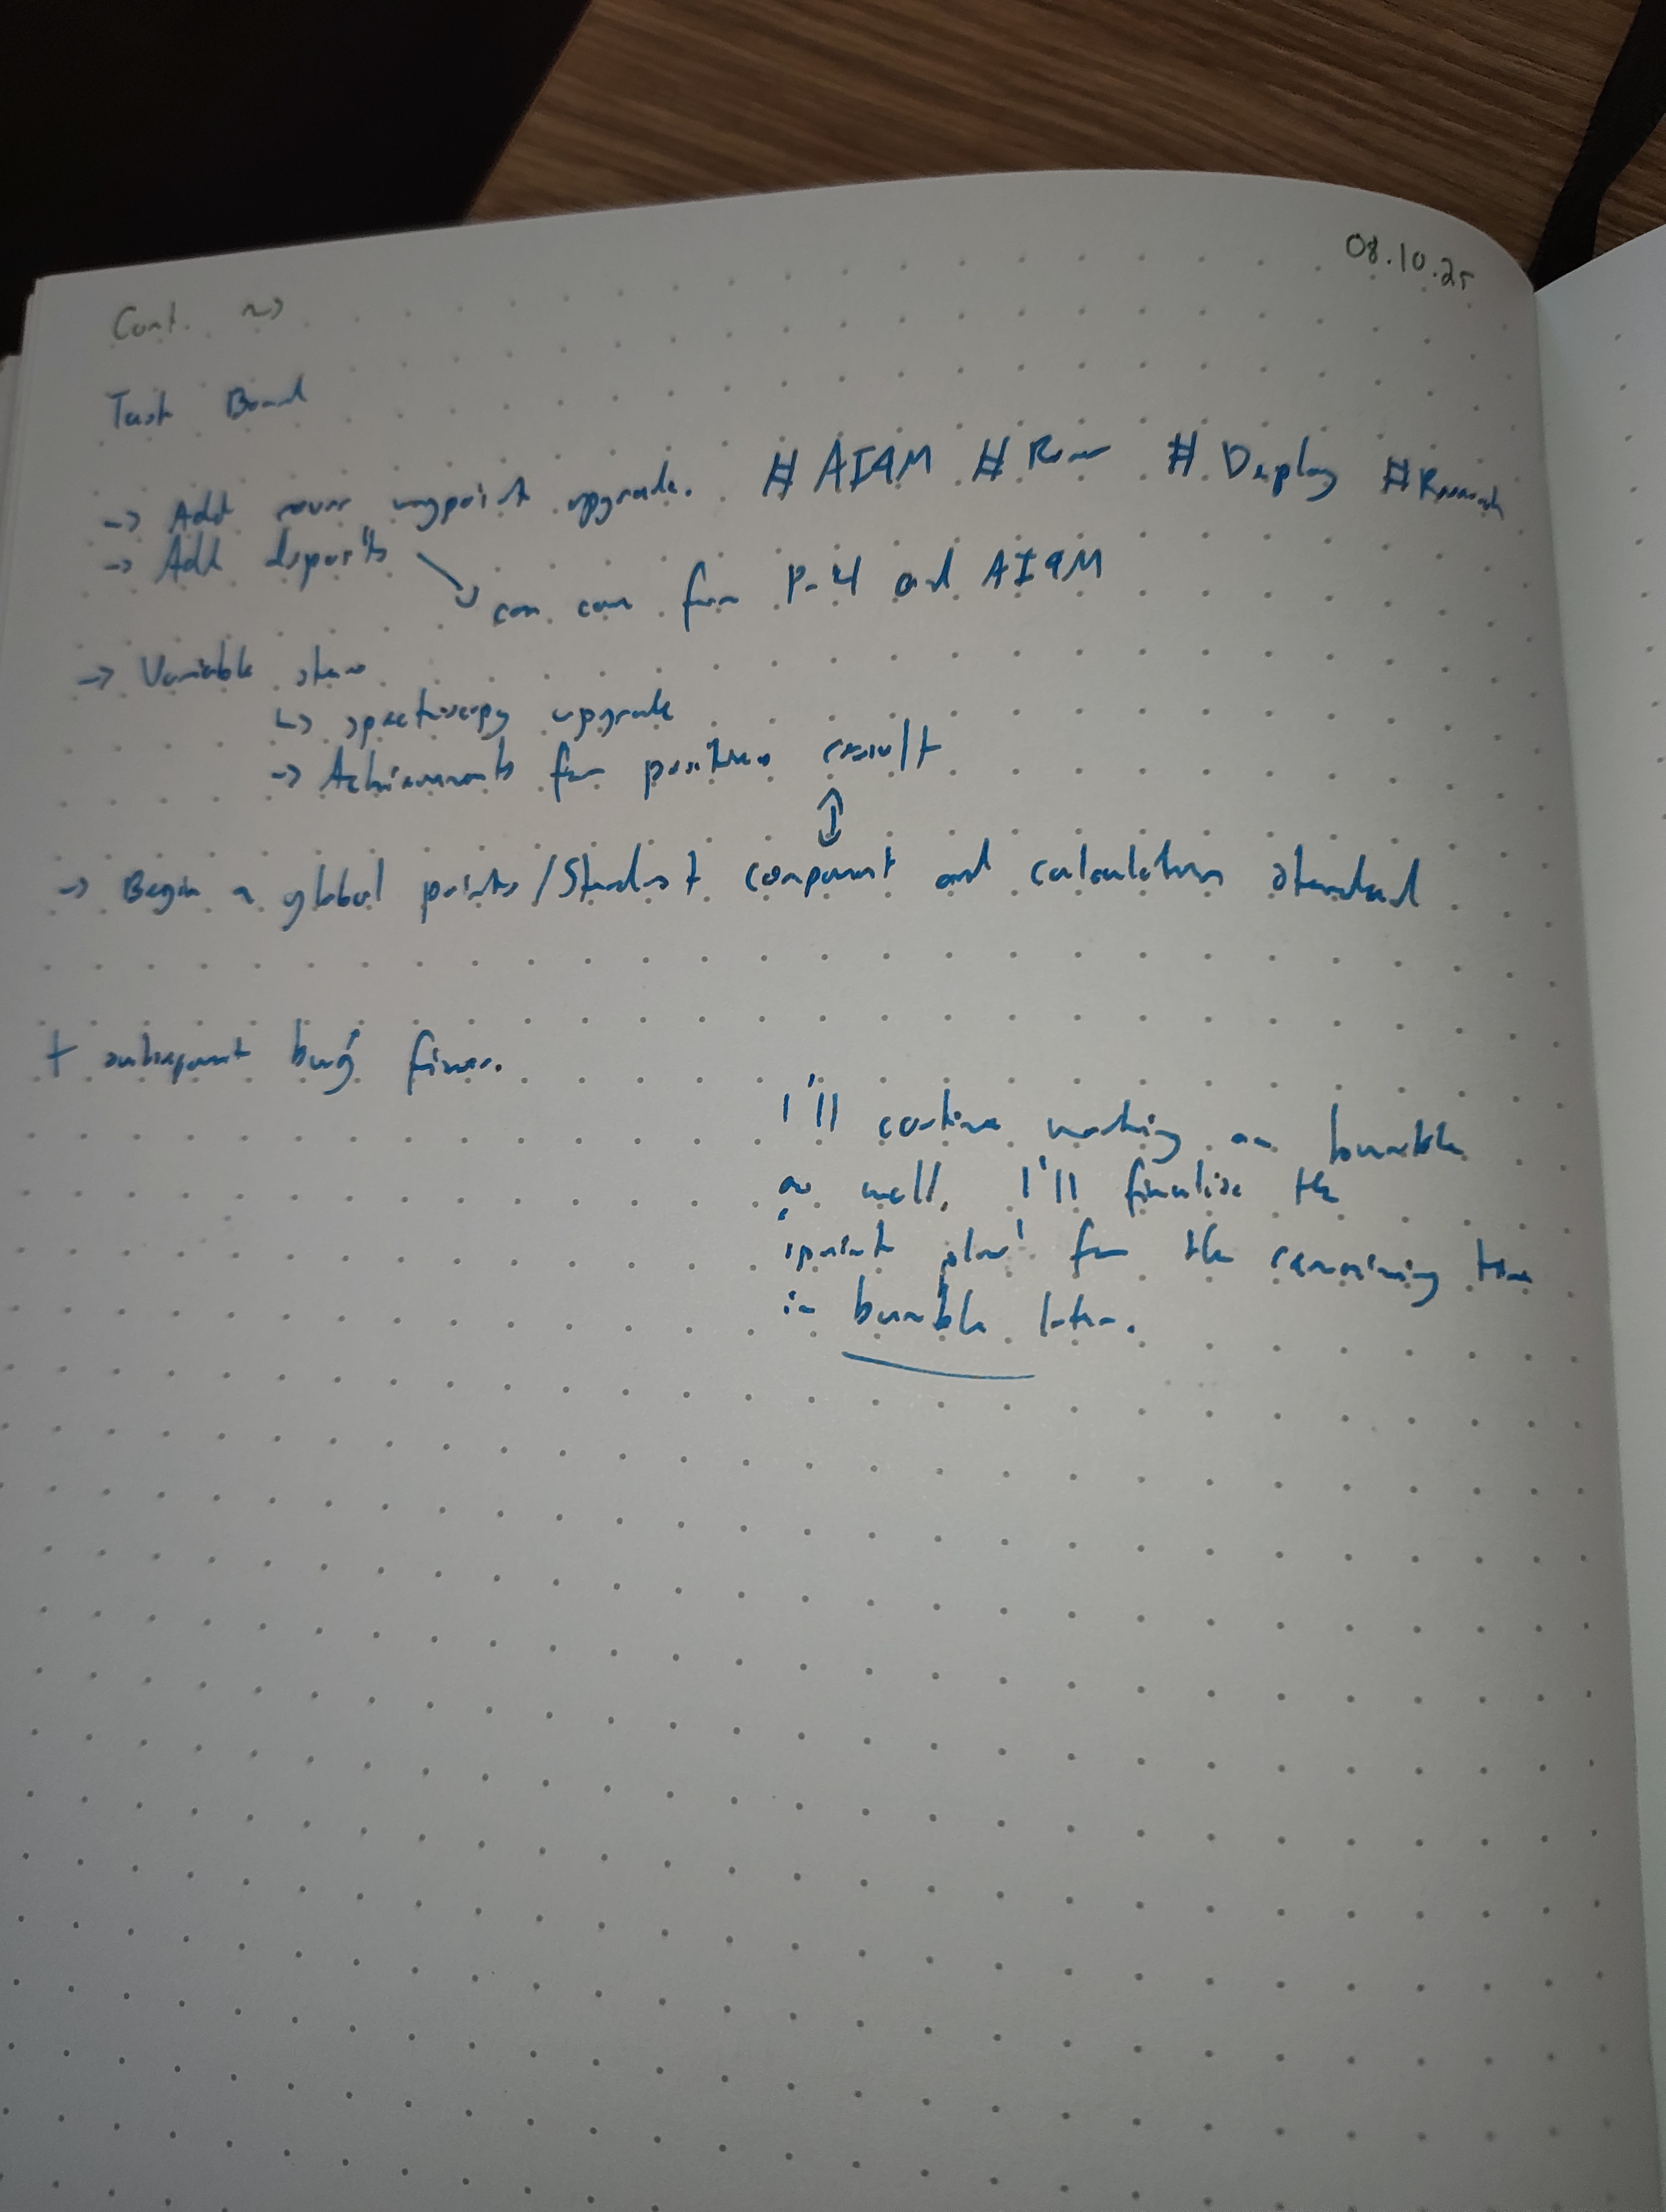 08.10.25
Cont. ~>
Task Board
-> Add rover waypoint upgrade. # AI4M # Rover # Deploy # Research
-> Add deposits
can come from P-4 and AI4M
-> Variable stars
↳ spectroscopy upgrade
-> Achievements for positive result
-> Begin a global points/Stardust component and calculations standard
+ subsequent bug fixes.
I'll continue working on bumble
as well. I'll finalise the
'sprint plan' for the remaining time
in bumble later.